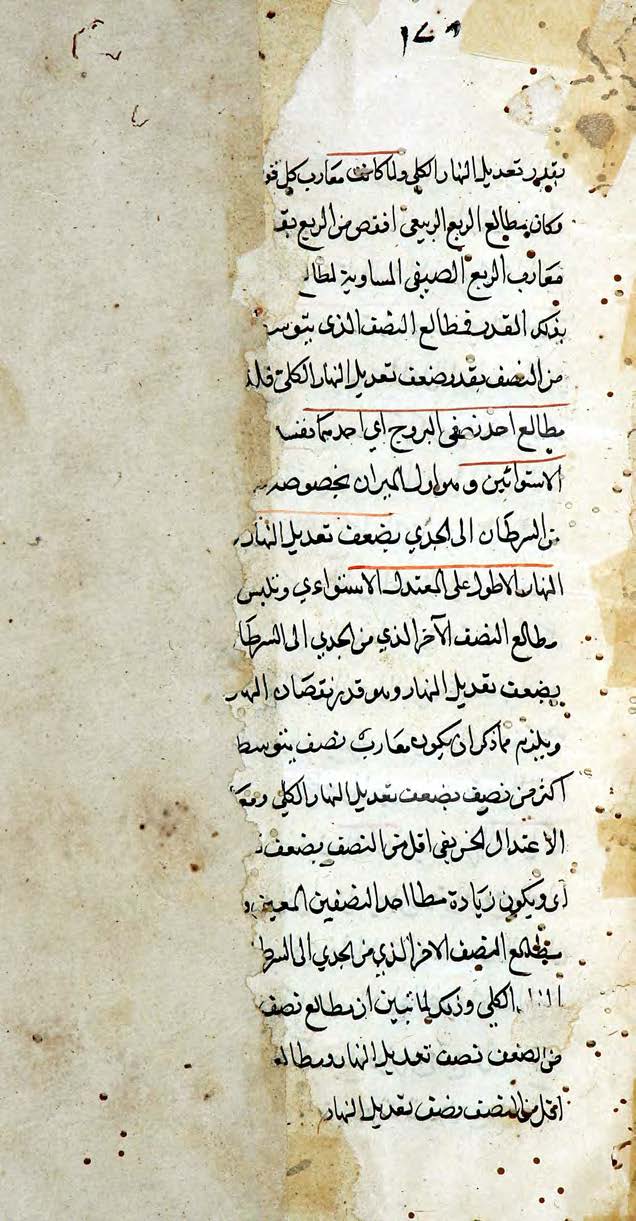 بقدر تعديل النهار الكلي ولما كانت مغارب كل قو
وكان مطالع الربع الربيعي انقص من الربع بقد
مغارب الربع الصيفي المساوية لمطالع
بذلك القدر فمطالع النصف الذي يتوسط
من النصف بقدر ضعف تعديل النهار الكلي فلذ
مطالع احد نصفي البروج اي احد نقط
الاستوائين وهو اول الميزان بخصوصه
من السرطان الى الجدي بضعف تعديل النهار
النهار الاطول على المعتدل الاستواءي
ومطالع النصف الآخر الذي من الجدي الى السرطا
بضعف تعديل النهار وهو قدر نقصان النهار
ويلزم مما ذكر ان يكون مغارب نصف يتوسط
اكثر من نصف بضعف تعديل النهار الكلي ومغا
الاعتدال الخريفي اقل من النصف بضعف
اى ويكون زيادة مطالع احد النصفين المعينين و
مطالع النصف الاخر الذي من الجدي الى السرط
الكلي وذلك لما تبين ان مطالع نصف
من النصف بضعف تعديل النهار ومطالع
اقل من النصف بضعف تعديل النهار